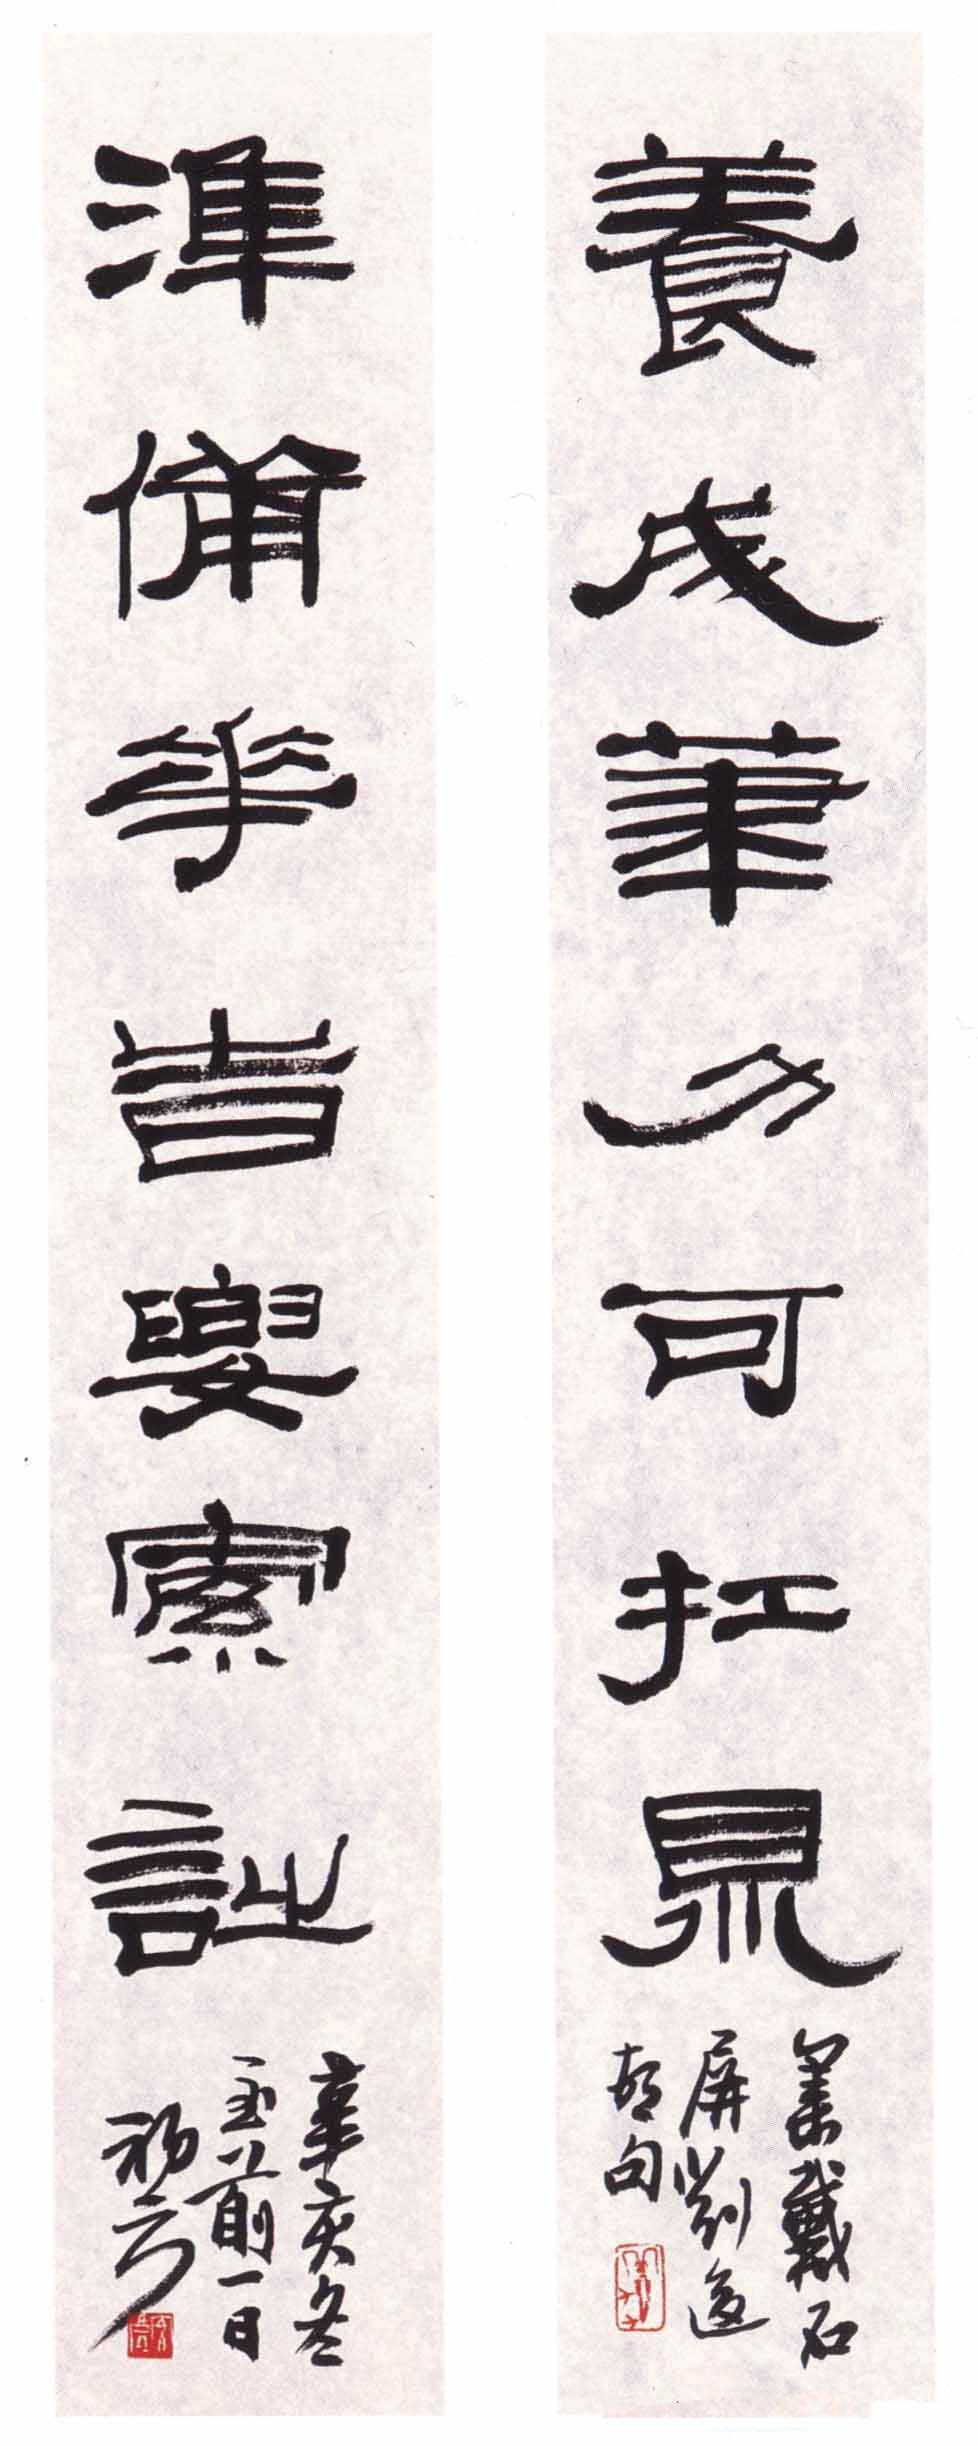 養成筆力可扛鼎
集戴石
屏劉過
詩句
準備華旹要索詩
辛亥冬
至前一日